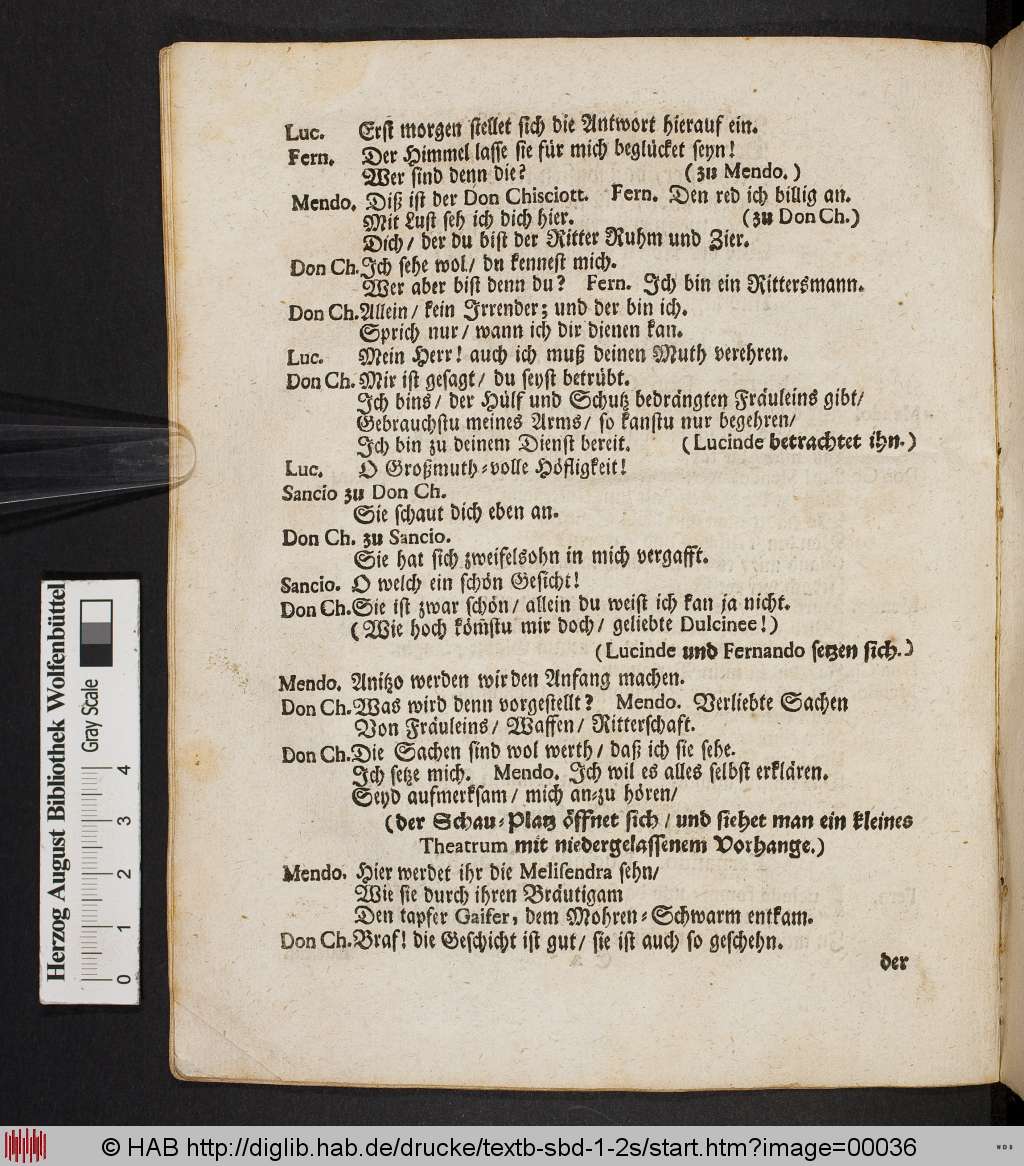 Luc. Erst morgen stellet sich die Antwort hierauf ein.
Fern. Der Himmel lasse sie für mich beglücket seyn!
Wer sind denn die? (zu Mendo.)
Mendo. Diß ist der Don Chisciott. Fern. Den red ich billig an.
Mit Lust seh ich dich hier. (zu Don Ch.)
Dich/ der du bist der Ritter Ruhm und Zier.
Don Ch. Ich sehe wol/ du kennest mich.
Wer aber bist denn du? Fern. Ich bin ein Rittersmann.
Don Ch. Allein/ kein Irrender; und der bin ich.
Sprich nur/ wann ich dir dienen kan.
Luc. Mein Herr! auch ich muß deinen Muth verehren.
Don Ch. Mir ist gesagt/ du seyst betrübt.
Ich bins/ der Hülf und Schutz bedrängten Fräuleins gibt/
Gebrauchstu meines Arms/ so kanstu nur begehren/
Ich bin zu deinem Dienst bereit. (Lucinde betrachtet ihn.)
Luc. O Großmuth-volle Höfligkeit!
Sancio zu Don Ch.
Sie schaut dich eben an.
Don Ch. zu Sancio.
Sie hat sich zweifelsohn in mich vergafft.
Sancio. O welch ein schön Gesicht!
Don Ch. Sie ist zwar schön/ allein du weist ich kan ja nicht.
(Wie hoch köm̃stu mir doch/ geliebte Dulcinee!)
(Lucinde und Fernando setzen sich.)
Mendo. Anitzo werden wir den Anfang machen.
Don Ch. Was wird denn vorgestellt? Mendo. Verliebte Sachen
Von Fräuleins/ Waffen/ Ritterschaft.
Don Ch. Die Sachen sind wol werth/ daß ich sie sehe.
Ich setze mich. Mendo. Ich wil es alles selbst erklären.
Seyd aufmerksam/ mich an-zu hören/
(der Schau-Platz öffnet sich/ und siehet man ein kleines
Theatrum mit niedergelassenem Vorhange.)
Mendo. Hier werdet ihr die Melisendra sehn/
Wie sie durch ihren Bräutigam
Den tapfer Gaifer, dem Mohren-Schwarm entkam.
Don Ch. Braf! die Geschicht ist gut/ sie ist auch so geschehn.
der
Herzog August Bibliothek Wolfenbüttel
Gray Scale
0 1 2 3 4
© HAB http://diglib.hab.de/drucke/textb-sbd-1-2s/start.htm?image=00036